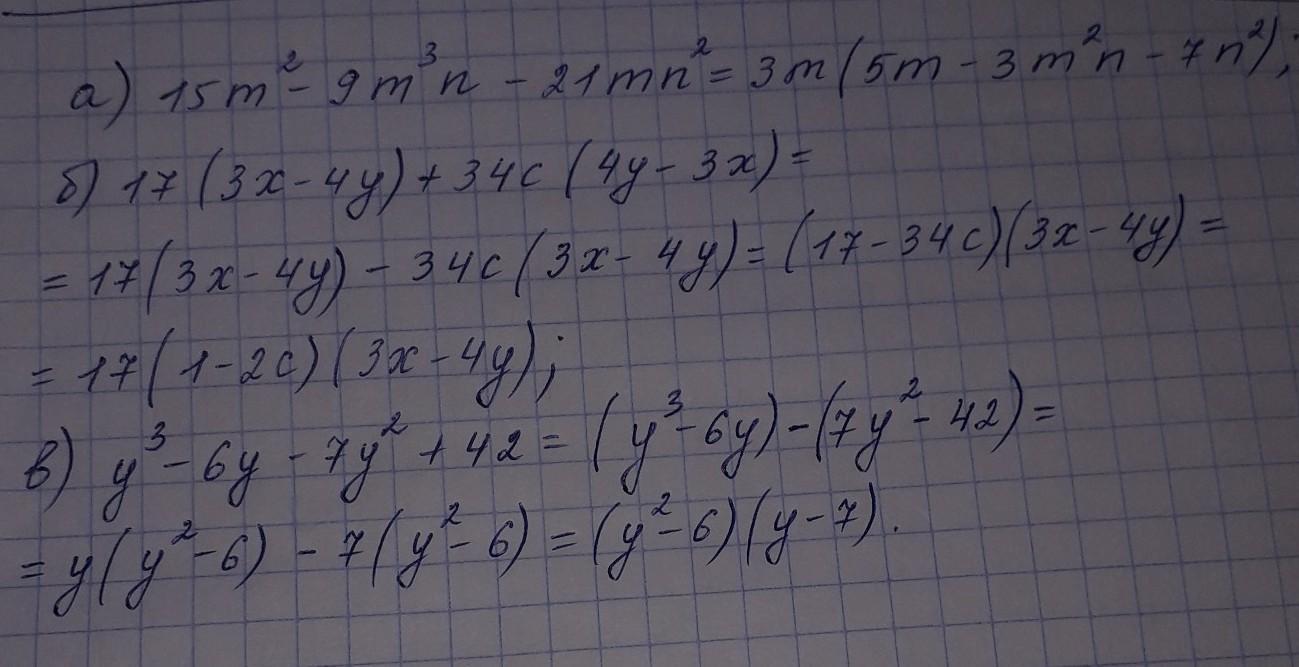 а) 15m² - 9m³n - 21mn² = 3m(5m - 3m²n - 7n²);
б) 17(3x - 4y) + 34c(4y - 3x) =
= 17(3x - 4y) - 34c(3x - 4y) = (17 - 34c)(3x - 4y) =
= 17(1 - 2c)(3x - 4y);
в) y³ - 6y - 7y² + 42 = (y³ - 6y) - (7y² - 42) =
= y(y² - 6) - 7(y² - 6) = (y² - 6)(y - 7).